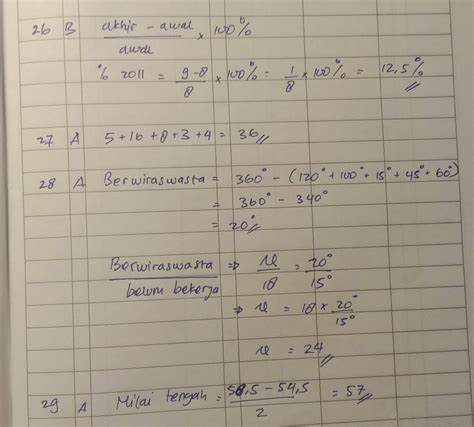 26 B akhir - awal / awal × 100%
% 2011 = 9-8 / 8 × 100% = 1/8 × 100% = 12,5%
27 A 5+16+8+3+4 = 36
28 A Berwiraswasta = 360° - (120° + 100° + 15° + 45° + 60°)
= 360° - 340°
= 20°
Berwiraswasta / belum bekerja ⇒ x/18 = 20°/15°
⇒ x = 18 × 20°/15°
x = 24
29 A Nilai tengah = 58,5 - 54,5 / 2 = 57